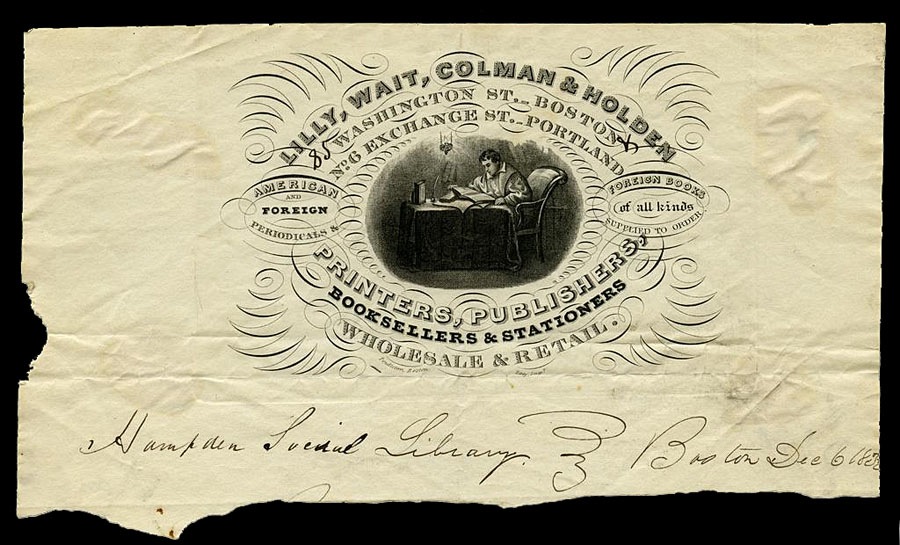 LILLY, WAIT, COLMAN & HOLDEN
85 WASHINGTON ST. - BOSTON &
No. 6 EXCHANGE ST. - PORTLAND
AMERICAN
AND
FOREIGN
PERIODICALS &
FOREIGN BOOKS
of all kinds
SUPPLIED TO ORDER
PRINTERS, PUBLISHERS,
BOOKSELLERS & STATIONERS
WHOLESALE & RETAIL.
Hampden Social Library. Boston Dec 6